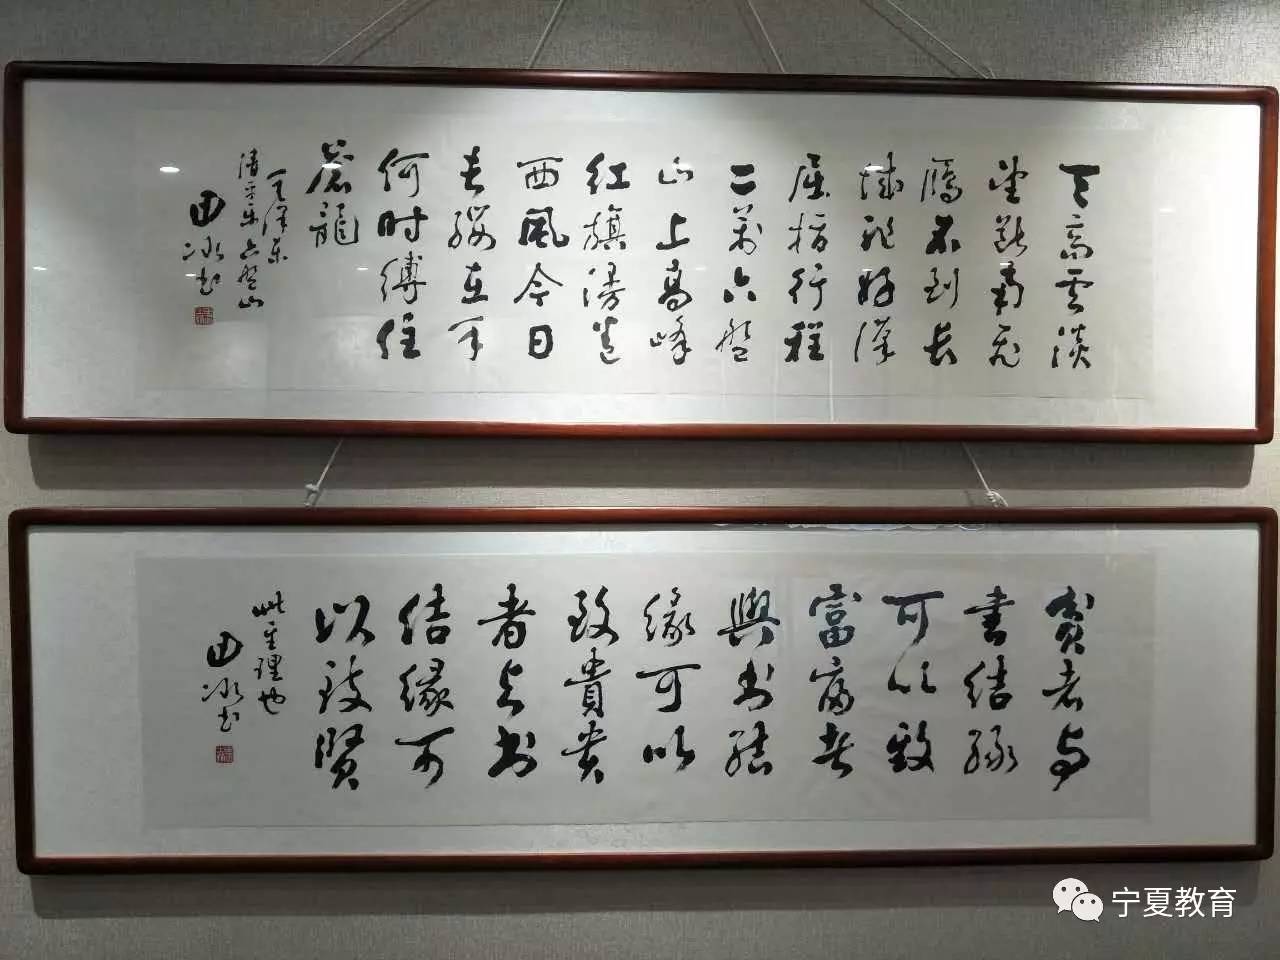 天高云淡
望断南飛
鴈不到长
城非好漢
屈指行程
二万六盘
山上高峰
红旗漫卷
西风今日
长缨在手
何时缚住
蒼龍
毛泽东
清平乐六盘山
田冰书
贫者与
書结缘
可以致
富富者
與书结
缘可以
致貴贵
者与书
结缘可
以致賢
此至理也
田冰书
宁夏教育